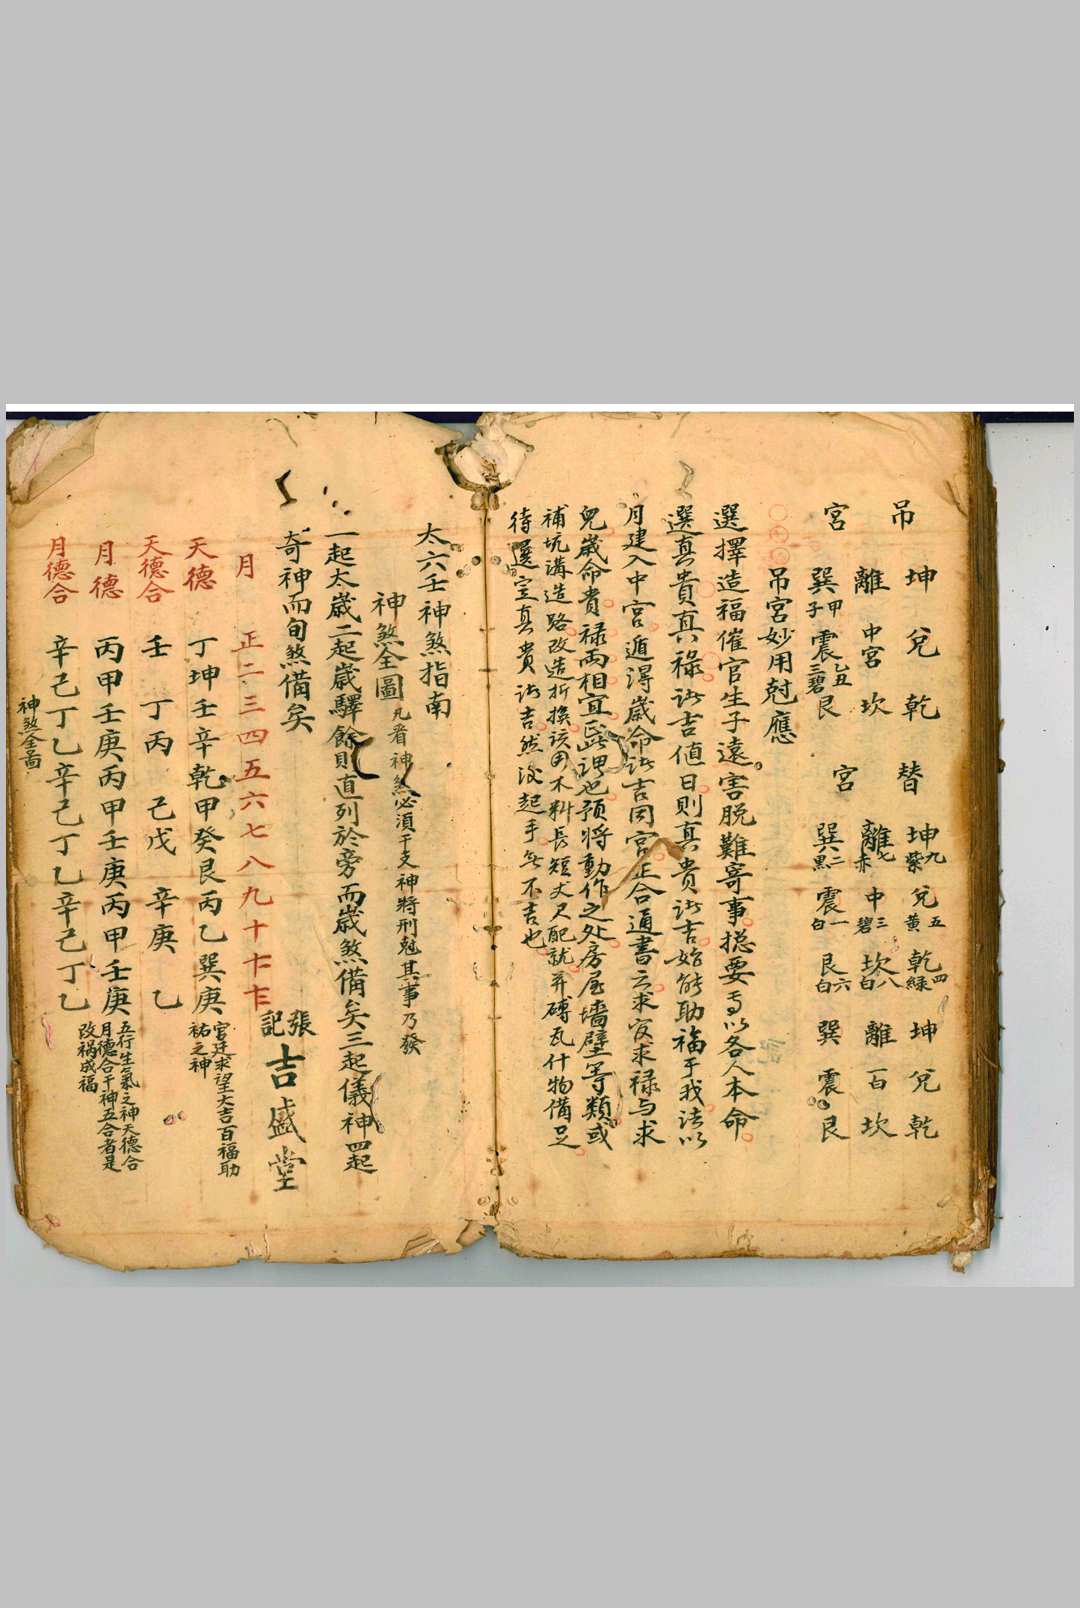 吊 坤 兌 乾 替 坤九紫 兌五黃 乾四綠 坤 兌 乾
離 中宮 坎 離七赤 中三碧 坎八白 離 百 坎
宮 巽甲子 震乙丑三碧 艮 宮 巽二黑 震一白 艮六白 巽 震 艮
吊宮妙用尅應
選擇造福催官生子遠害脫難寄事摠要以各人本命
選真貴真祿諸吉值日則真貴諸吉始能助福于我法以
月建入中宮遁得歲命諸吉同宮正合通書云求官求祿与求
兒歲命貴祿兩相宜此謂也預將動作之处房屋墻壁等類或
補坑溝造路改造折換該用木料長短丈尺配就并磚瓦什物備足
待選定真貴諸吉然後起手無不吉也
太六壬神煞指南
神煞全圖 凡看神煞必須干支神將刑尅其事乃發
一起太歲二起歲驛餘則直列於旁而歲煞備矣三起儀神四起
奇神而旬煞備矣
張記吉盛堂
月 正二三四五六七八九十十十
天德 丁坤壬辛乾甲癸艮丙乙巽庚 宮廷求望大吉百福助祐之神
天德合 壬 丁丙 己戊 辛庚 乙 五行生氣之神天德合
月德 丙甲壬庚丙甲壬庚丙甲壬庚 月德合干神五合者是
月德合 辛己丁乙辛己丁乙辛己丁乙 改禍成福
神煞全圖